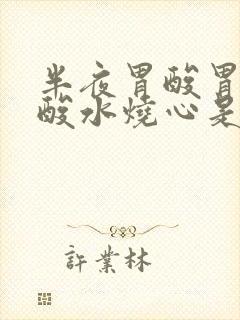 半夜胃酸胃
酸水燒心是
許業林